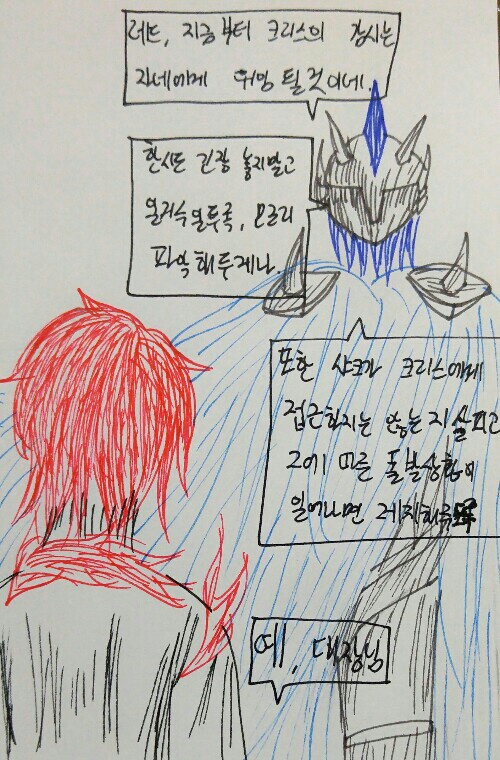 레드, 지금부터 크리스의 감시는
자네에게 위임 될 것이네.
한시도 긴장 놓지말고
일거수일투족, 모조리
파악해두게나.
또한 샤크가 크리스에게
접근하지는 않는지 살피고
그에 따른 돌발상황이
일어나면 제지하
예, 대장님